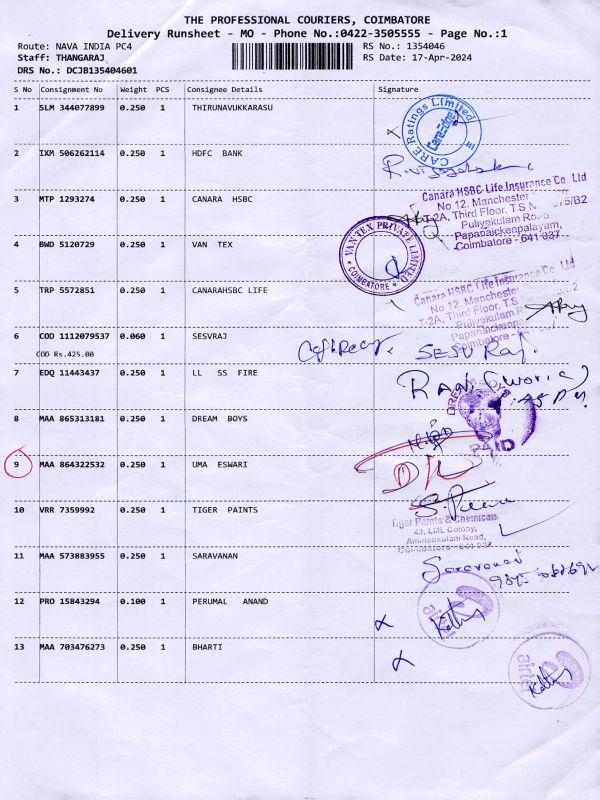 THE PROFESSIONAL COURIERS, COIMBATORE
Delivery Runsheet - MO - Phone No.:0422-3505555 - Page No.:1
Route: NAVA INDIA PC4 RS No.: 1354046
Staff: THANGARAJ RS Date: 17-Apr-2024
DRS No.: DCJB135404601
S No Consignment No Weight PCS Consignee Details Signature
1 SLM 344077899 0.250 1 THIRUNAVUKKARASU
CARE Ratings Limited
CareEdge
2 IXM 506262114 0.250 1 HDFC BANK
3 MTP 1293274 0.250 1 CANARA HSBC
Canara HSBC Life Insurance Co Ltd
No 12, Manchester
T-2A, Third Floor, T.S N 575/B2
Puliyakulam Road
Papanaickenpalayam,
Coimbatore - 641 037
4 BWD 5120729 0.250 1 VAN TEX
VAN TEX PRIVATE LIMITED
COIMBATORE
5 TRP 5572851 0.250 1 CANARAHSBC LIFE
Canara HSBC Life Insurance Co Ltd
No 12, Manchester
T-2A, Third Floor, T.S
Puliyakulam R
Papanaickenp
Coimbatore - 64
6 COD 1112079537 0.060 1 SESVRAJ
COD Rs.425.00
SESU Raj.
7 EDQ 11443437 0.250 1 LL SS FIRE
RANI
8 MAA 865313181 0.250 1 DREAM BOYS
PAID
9 MAA 864322532 0.250 1 UMA ESWARI
10 VRR 7359992 0.250 1 TIGER PAINTS
Tiger Paints & Chemicals
42, LML Colony,
Ammankulam Road,
Coimbatore - 641 037
11 MAA 573883955 0.250 1 SARAVANAN
Saravanan
12 PRO 15843294 0.100 1 PERUMAL ANAND
airtel
13 MAA 703476273 0.250 1 BHARTI
airtel